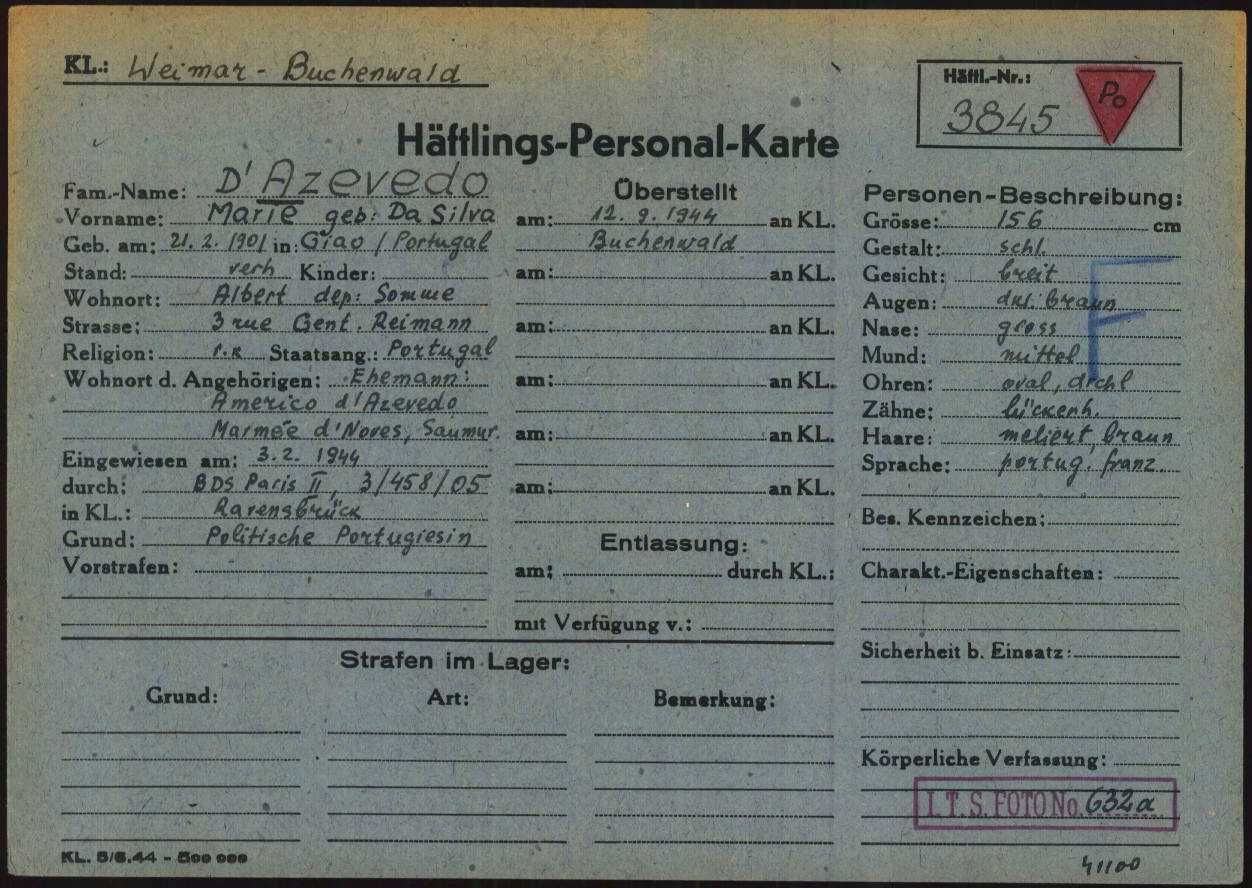 KL.: Weimar - Buchenwald
Häftl.-Nr.:
3845
Po
Häftlings-Personal-Karte
Fam.-Name: D'Azevedo
Vorname: Marie geb: Da Silva
Geb. am: 21.2.1901 in: Giao / Portugal
Stand: verh Kinder:
Wohnort: Albert dep: Somme
Strasse: 3 rue Gent. Reimann
Religion: r.k Staatsang.: Portugal
Wohnort d. Angehörigen: Ehemann:
Americo d'Azevedo
Marmée d'Noves, Saumur.
Eingewiesen am: 3.2. 1944
durch: BDS Paris II, 3/458/05
in KL.: Ravensbrück
Grund: Politische Portugiesin
Vorstrafen:
Überstellt
am: 12. 9. 1944 an KL.
Buchenwald
am: an KL.
am: an KL.
am: an KL.
am: an KL.
am: an KL.
Entlassung:
am: durch KL.:
mit Verfügung v.:
Personen-Beschreibung:
Grösse: 156 cm
Gestalt: schl.
Gesicht: breit
Augen: dkl. braun
Nase: gross
Mund: mittel
Ohren: oval,
Zähne: lückenh.
Haare: meliert, braun
Sprache: portug. franz
F
Bes. Kennzeichen:
Charakt.-Eigenschaften:
Sicherheit b. Einsatz:
Körperliche Verfassung:
Strafen im Lager:
Grund: Art: Bemerkung:
I.T.S. FOTO No. 632a
KL. 5/6.44 - 500 000
41100